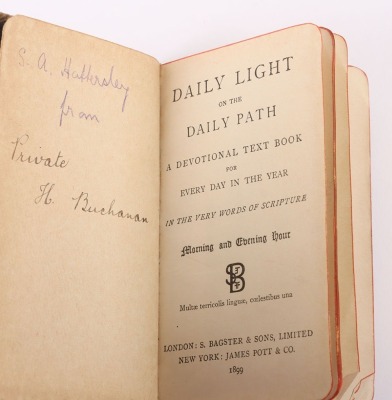 S. A. Hattersley
from
Private
H. Buchanan
DAILY LIGHT
ON THE
DAILY PATH
A DEVOTIONAL TEXT BOOK
FOR
EVERY DAY IN THE YEAR
IN THE VERY WORDS OF SCRIPTURE
Morning and Evening Hour
Multæ terricolis linguæ, cœlestibus una
LONDON: S. BAGSTER & SONS, LIMITED
NEW YORK: JAMES POTT & CO.
1899